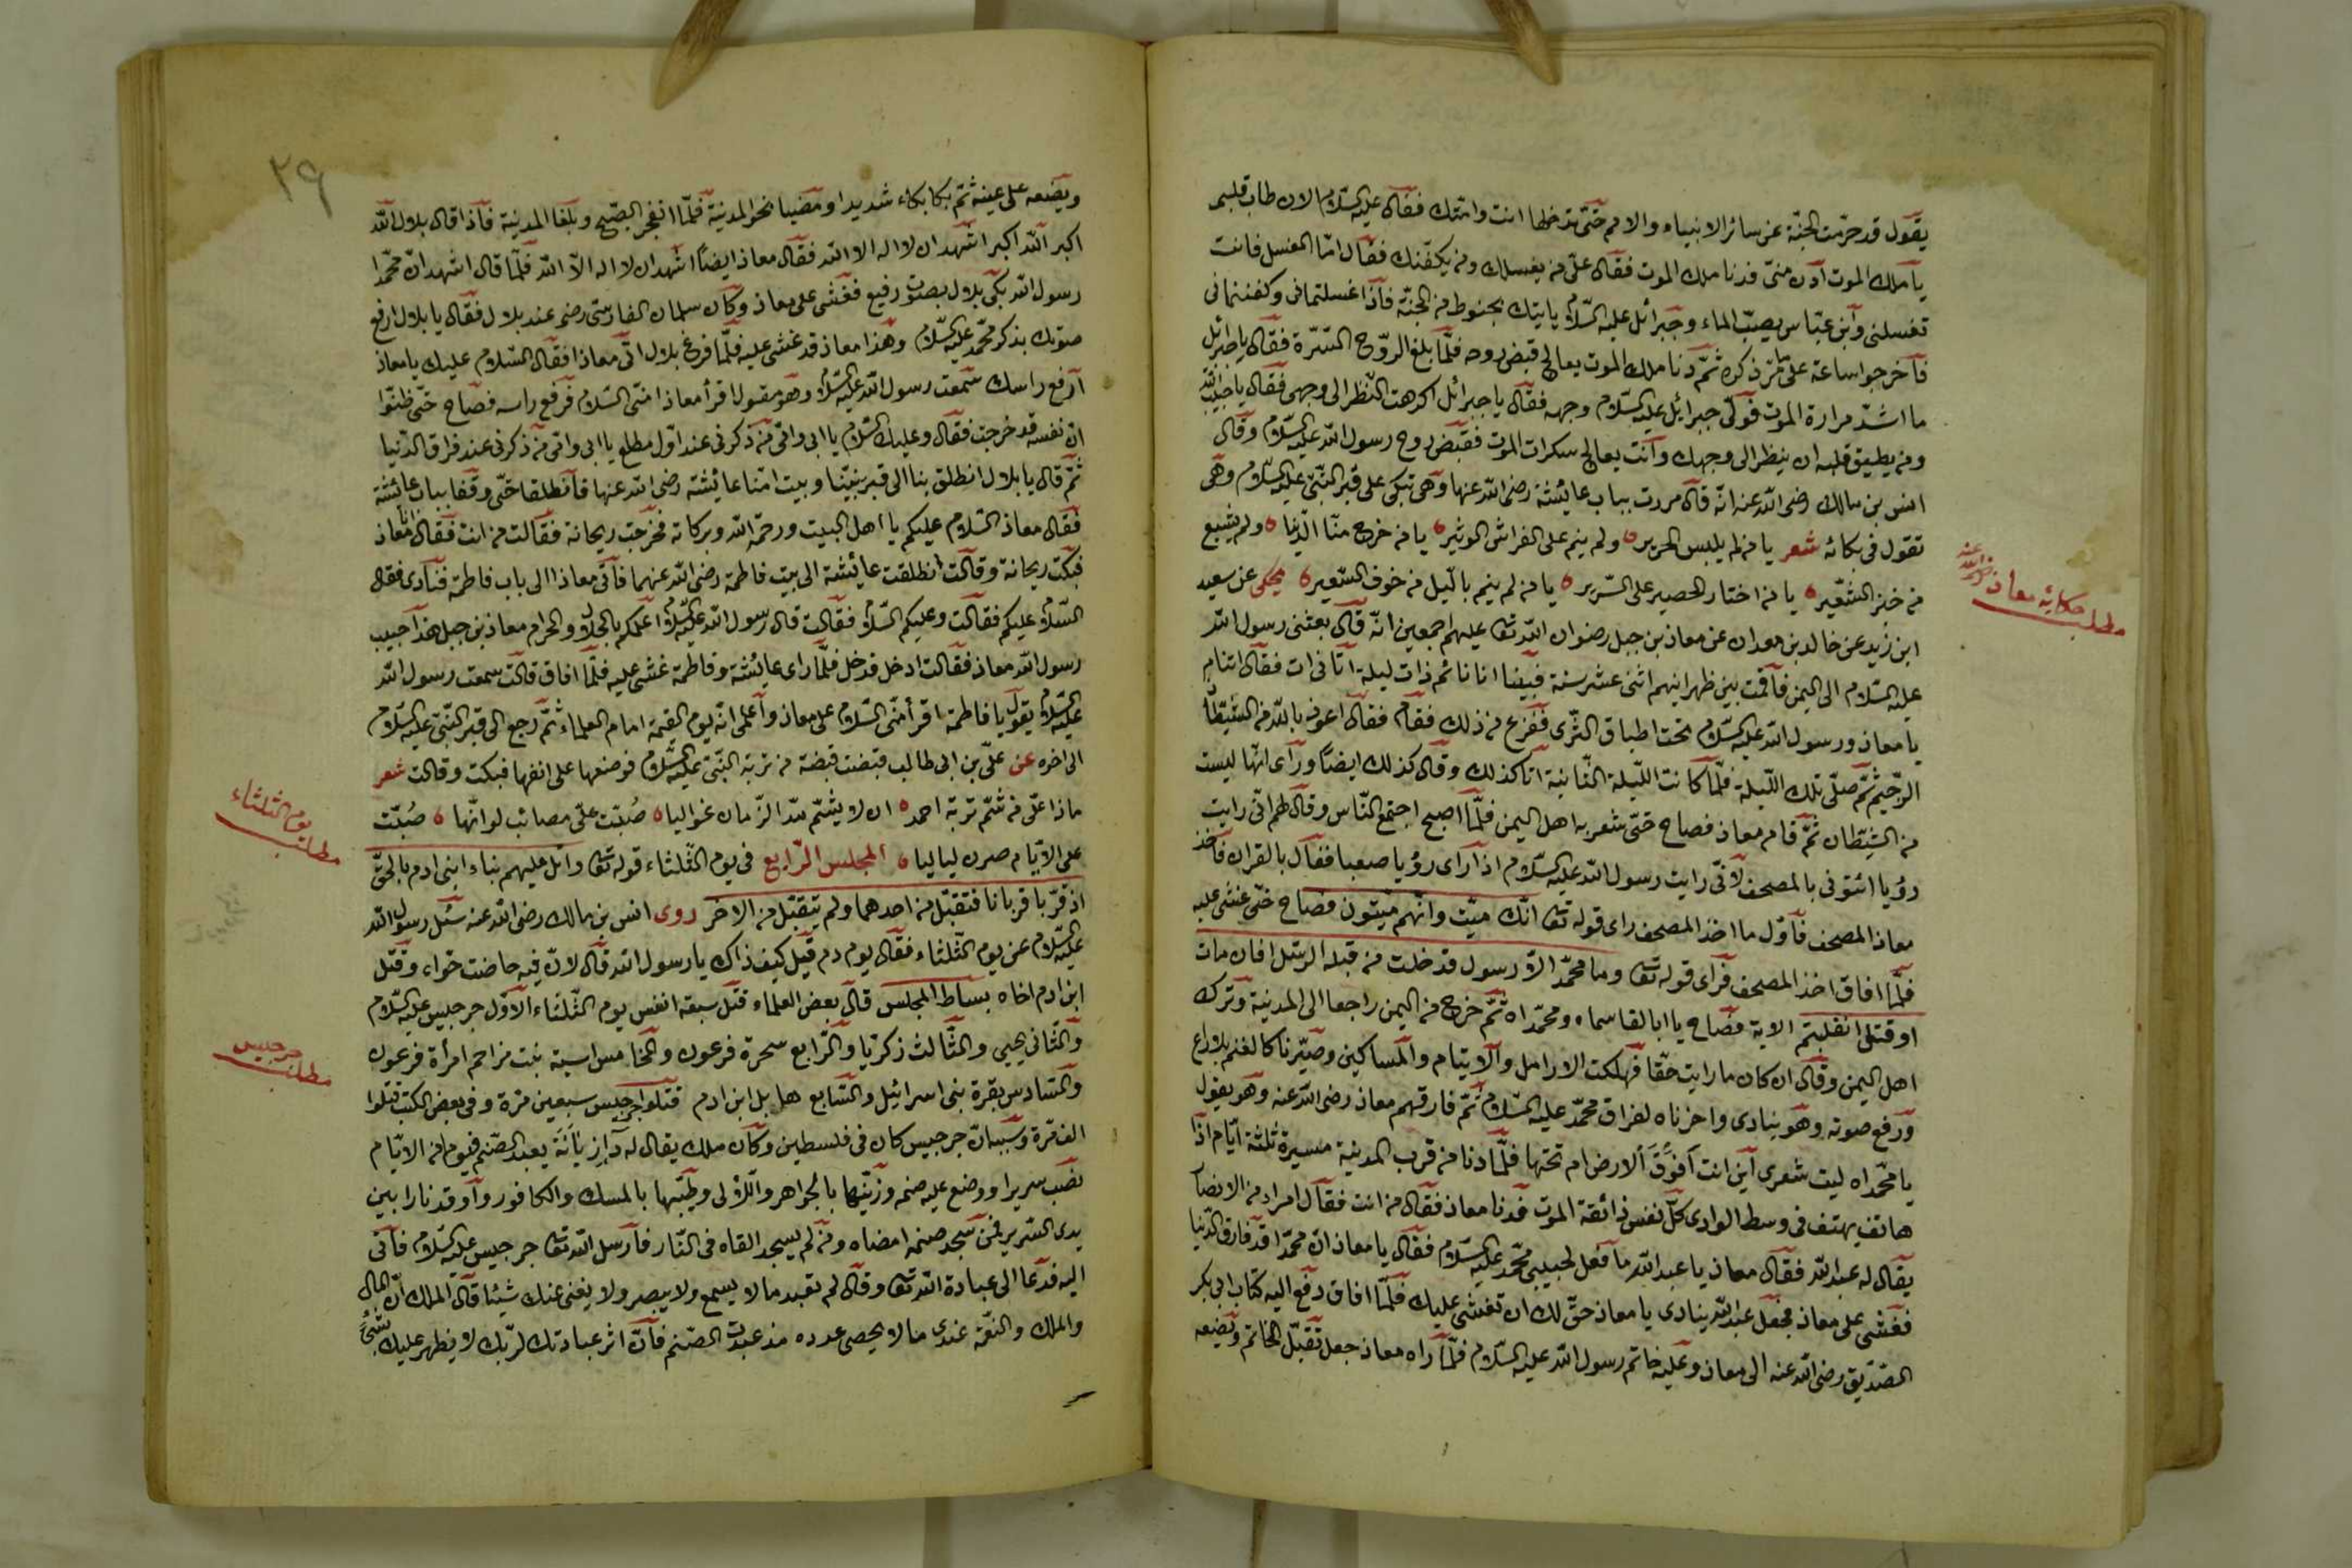 يقول قد حرّمت الجنّة عن سائر الانبياء والامم حتّى تدخلها انت وامّتك فقال عليه السّلام الان طاب قلبى
يا ملك الموت ادن منّى فدنا ملك الموت فقال علىّ من يغسلك ومن يكفّنك فقال امّا الغسل فانت
تغسلنى وابن عبّاس يصبّ الماء وجبرائل عليه السّلام ياتيك بحنوط من الجنّة فاذا غسلتمانى وكفنتمانى
فاخرجوا ساعة على ما مرّ ذكره ثمّ دنا ملك الموت يعالج قبض روحه فلمّا بلغ الرّوح السّرّة فقال يا جبرئل
ما اشدّ مرارة الموت فولّى جبرائل عليه السّلام وجهه فقال يا جبرائل اكرهت النّظر الى وجهى فقال يا حبيب الله
ومن يطيق قلبه ان ينظر الى وجهك وانت يعالج سكرات الموت فقبض روح رسول الله عليه السّلام وقال
انس بن مالك رضى الله عنه انّه قال مررت بباب عائشة رضى الله عنها وهى تبكى على قبر النّبىّ عليه السّلام وهى
تقول فى بكائه شعر يا من لم يلبس الحرير ولم ينم على الفراش الوثير يا من خرج منّا الدّنيا ولم يشبع
من خبز الشّعير يا من اختار الحصير على السّرير يا من لم ينم بالّيل من خوف السّعير يحكى عن سعيد
ابن زيد عن خالد بن معدان عن معاذ بن جبل رضوان الله تعا عليهم اجمعين انّه قال بعثنى رسول الله
عليه السّلام الى اليمن فاقمت بين ظهرانيهم اثنى عشر سنة فبينا انا نائم ذات ليلة اتانى ات فقال اتنام
يا معاذ ورسول الله عليه السّلام تحت اطباق الثّرى ففزع من ذلك فقام فقال اعوذ بالله من الشّيطان
الرّجيم ثمّ صلّى تلك اللّيلة فلمّا كانت اللّيلة الثّانية اتا كذلك وقال كذلك ايضًا وراى انّها ليست
من الشّيطان ثمّ قام معاذ فصاح حتّى شعر به اهل اليمن فلمّا اصبح اجتمع النّاس وقال لهم انّى رايت
رؤيا ائتونى بالمصحف لانّى رايت رسول الله عليه السّلام اذا راى رؤيا صعبا فقال بالقران فاخذ
معاذ المصحف فاوّل ما اخذ المصحف راى قوله تعا انّك ميّت وانّهم ميّتون فصاح حتّى غشى عليه
فلمّا افاق اخذ المصحف فراى قوله تعا وما محمّد الاّ رسول قد خلت من قبله الرّسل افان مات
او قتل انقلبتم الاية فصاح يا ابا لقاسماه ومحمّداه ثمّ خرج من اليمن راجعا الى المدينة وترك
اهل اليمن وقال ان كان ما رايت حقّا فهلكت الارامل والايتام والمساكين وصيّرنا كالغنم بلا راع
ورفع صوته وهو ينادى واحزناه لفراق محمّد عليه السّلام ثمّ فارقهم معاذ رضى الله عنه وهو يقول
يا محمّداه ليت شعرى اين انت افوق الارض ام تحتها فلمّا دنا من قرب المدينة مسيرة ثلثة ايّام اذا
هاتف يهتف فى وسط الوادى كلّ نفس ذائقة الموت فدنا معاذ فقال من انت فقال امراد من الانصار
يقال له عبدالله فقال معاذ يا عبد الله ما فعل لحبيبى محمّد عليه السّلام فقال يا معاذ انّ محمّدا قد فارق الدّنيا
فغشى على معاذ فجعل عبدالله ينادى يا معاذ حقّ لك ان تغشى عليك فلمّا افاق دفع اليه كتاب ابى بكر
الصّدّيق رضى الله عنه الى معاذ وعليه خاتم رسول الله عليه السّلام فلمّا راه معاذ جعل تقبّل الخاتم ويضعه
مطلب حكايه معاذ رضى الله عنه
٢٩
ويضعه على عينه ثمّ بكا بكاء شديدا ومضيا نحو المدينة فلمّا انفجر الصّبح وبلغا المدينة فاذا قال بلال الله
اكبر الله اكبر اشهد ان لا اله الا الله فقال معاذ ايضًا اشهد ان لا اله الاّ الله فلمّا قال اشهد انّ محمّدا
رسول الله بكى بلال بصوت رفيع فغشى على معاذ وكان سلمان الفارسى رضى عند بلال فقال يا بلال ارفع
صوتك بذكر محمّد عليه السّلام وهذا معاذ قد غشى عليه فلمّا فرغ بلال اتى معاذا فقال السّلام عليك يا معاذ
ارفع راسك سمعت رسول الله عليه السّلام وهو يقول اقرأ معاذا منّى السّلام فرفع راسه فصاح حتّى ظنّوا
انّ نفسه قد خرجت فقال وعليك السّلام يا ابى وامّى من ذكرنى عند اوّل مطلع يا ابى وامى من ذكرنى عند فراق الدّنيا
ثمّ قال يا بلال انطلق بنا الى قبر نبيّنا وبيت امّنا عائشة رضى الله عنها فانطلقا حتّى وقفا بباب عائشة
فقال معاذ السّلام عليكم يا اهل البيت ورحمة الله وبركاته فخرجت ريحانة فقالت من انت فقال انا معاذ
فبكت ريحانة وقالت انطلقت عائشة الى بيت فاطمة رضى الله عنهما فاتى معاذا الى باب فاطمة فنادى فقال
السّلام عليكم فقالت وعليكم السّلام فقالت قال رسول الله عليه السّلام اعلمكم بالحلال والحرام معاذ بن جبل هذا حبيب
رسول الله معاذ فقالت ادخل فدخل فلمّا راى عائشة وفاطمة غشى عليه فلمّا افاق قالت سمعت رسول الله
عليه السّلام يقول يا فاطمة اقرأ منّى السّلام على معاذ واعلمى انّه يوم القيمة امام العلماء ثمّ رجع الى قبر النّبىّ عليه السّلام
الى اخره عن علىّ بن ابى طالب قبضت قبضة من تربة النّبىّ عليه السّلام فوضعها على انفها فبكت وقالت شعر
ماذا على من شمّ تربة احمد ان لا يشمّ مدّ الزّمان غواليا صُبّت علىّ مصائب لو انّها صُبّت
على الايّام صرن لياليا المجلس الرّابع فى يوم الثّلثاء قوله تعا واتل عليهم نباء ابنى ادم بالحقّ
اذ قرّبا قربانا فتقبّل من احدهما ولم يتقبّل من الاخر روى انس بن مالك رضى الله عنه سئل رسول الله
عليه السّلام عن يوم الثّلثاء فقال يوم دم قيل كيف ذاك يا رسول الله قال لانّ فيه حاضت حوّاء وقتل
ابن ادم اخاه بساط المجلس قال بعض العلماء قتل سبعة انفس يوم الثّلثاء الاوّل جرجيس عليه السّلام
والثّانى يحيى والثّالث زكريّا والرّابع سحرة فرعون والخامس اسية بنت مزاحم امرأة فرعون
والسّادس بقرة بنى اسرائيل والسّابع هابل ابن ادم قتلوا جرجيس سبعين مرّة وفى بعض الكتب قتلوا
الف مرّة وسببه انّ جرجيس كان فى فلسطين وكان ملك يقال له يعبد الصّنم فيوم من الايّام
نصب سريرا ووضع عليه صنمه وزيّنها بالجواهر والّؤلى وطيّبها بالمسك والكافور واوقد نارا بين
يدى السّرير فمن سجد صنمه امضاه ومن لم يسجد القاه فى النّار فارسل الله تعا جرجيس عليه السّلام فاتى
اليه فدعا الى عبادة الله تعا وقال لم تعبد ما لا يسمع ولا يبصر ولا يغنى عنك شيئا قال الملك انّ المال
والملك والنّعمة عندى ما لا يحصى عدده مذ عبدت الصّنم فانّ اثر عبادتك لربّك لا يظهر عليك بشئ
مطلب يوم الثلثاء
مطلب جرجيس